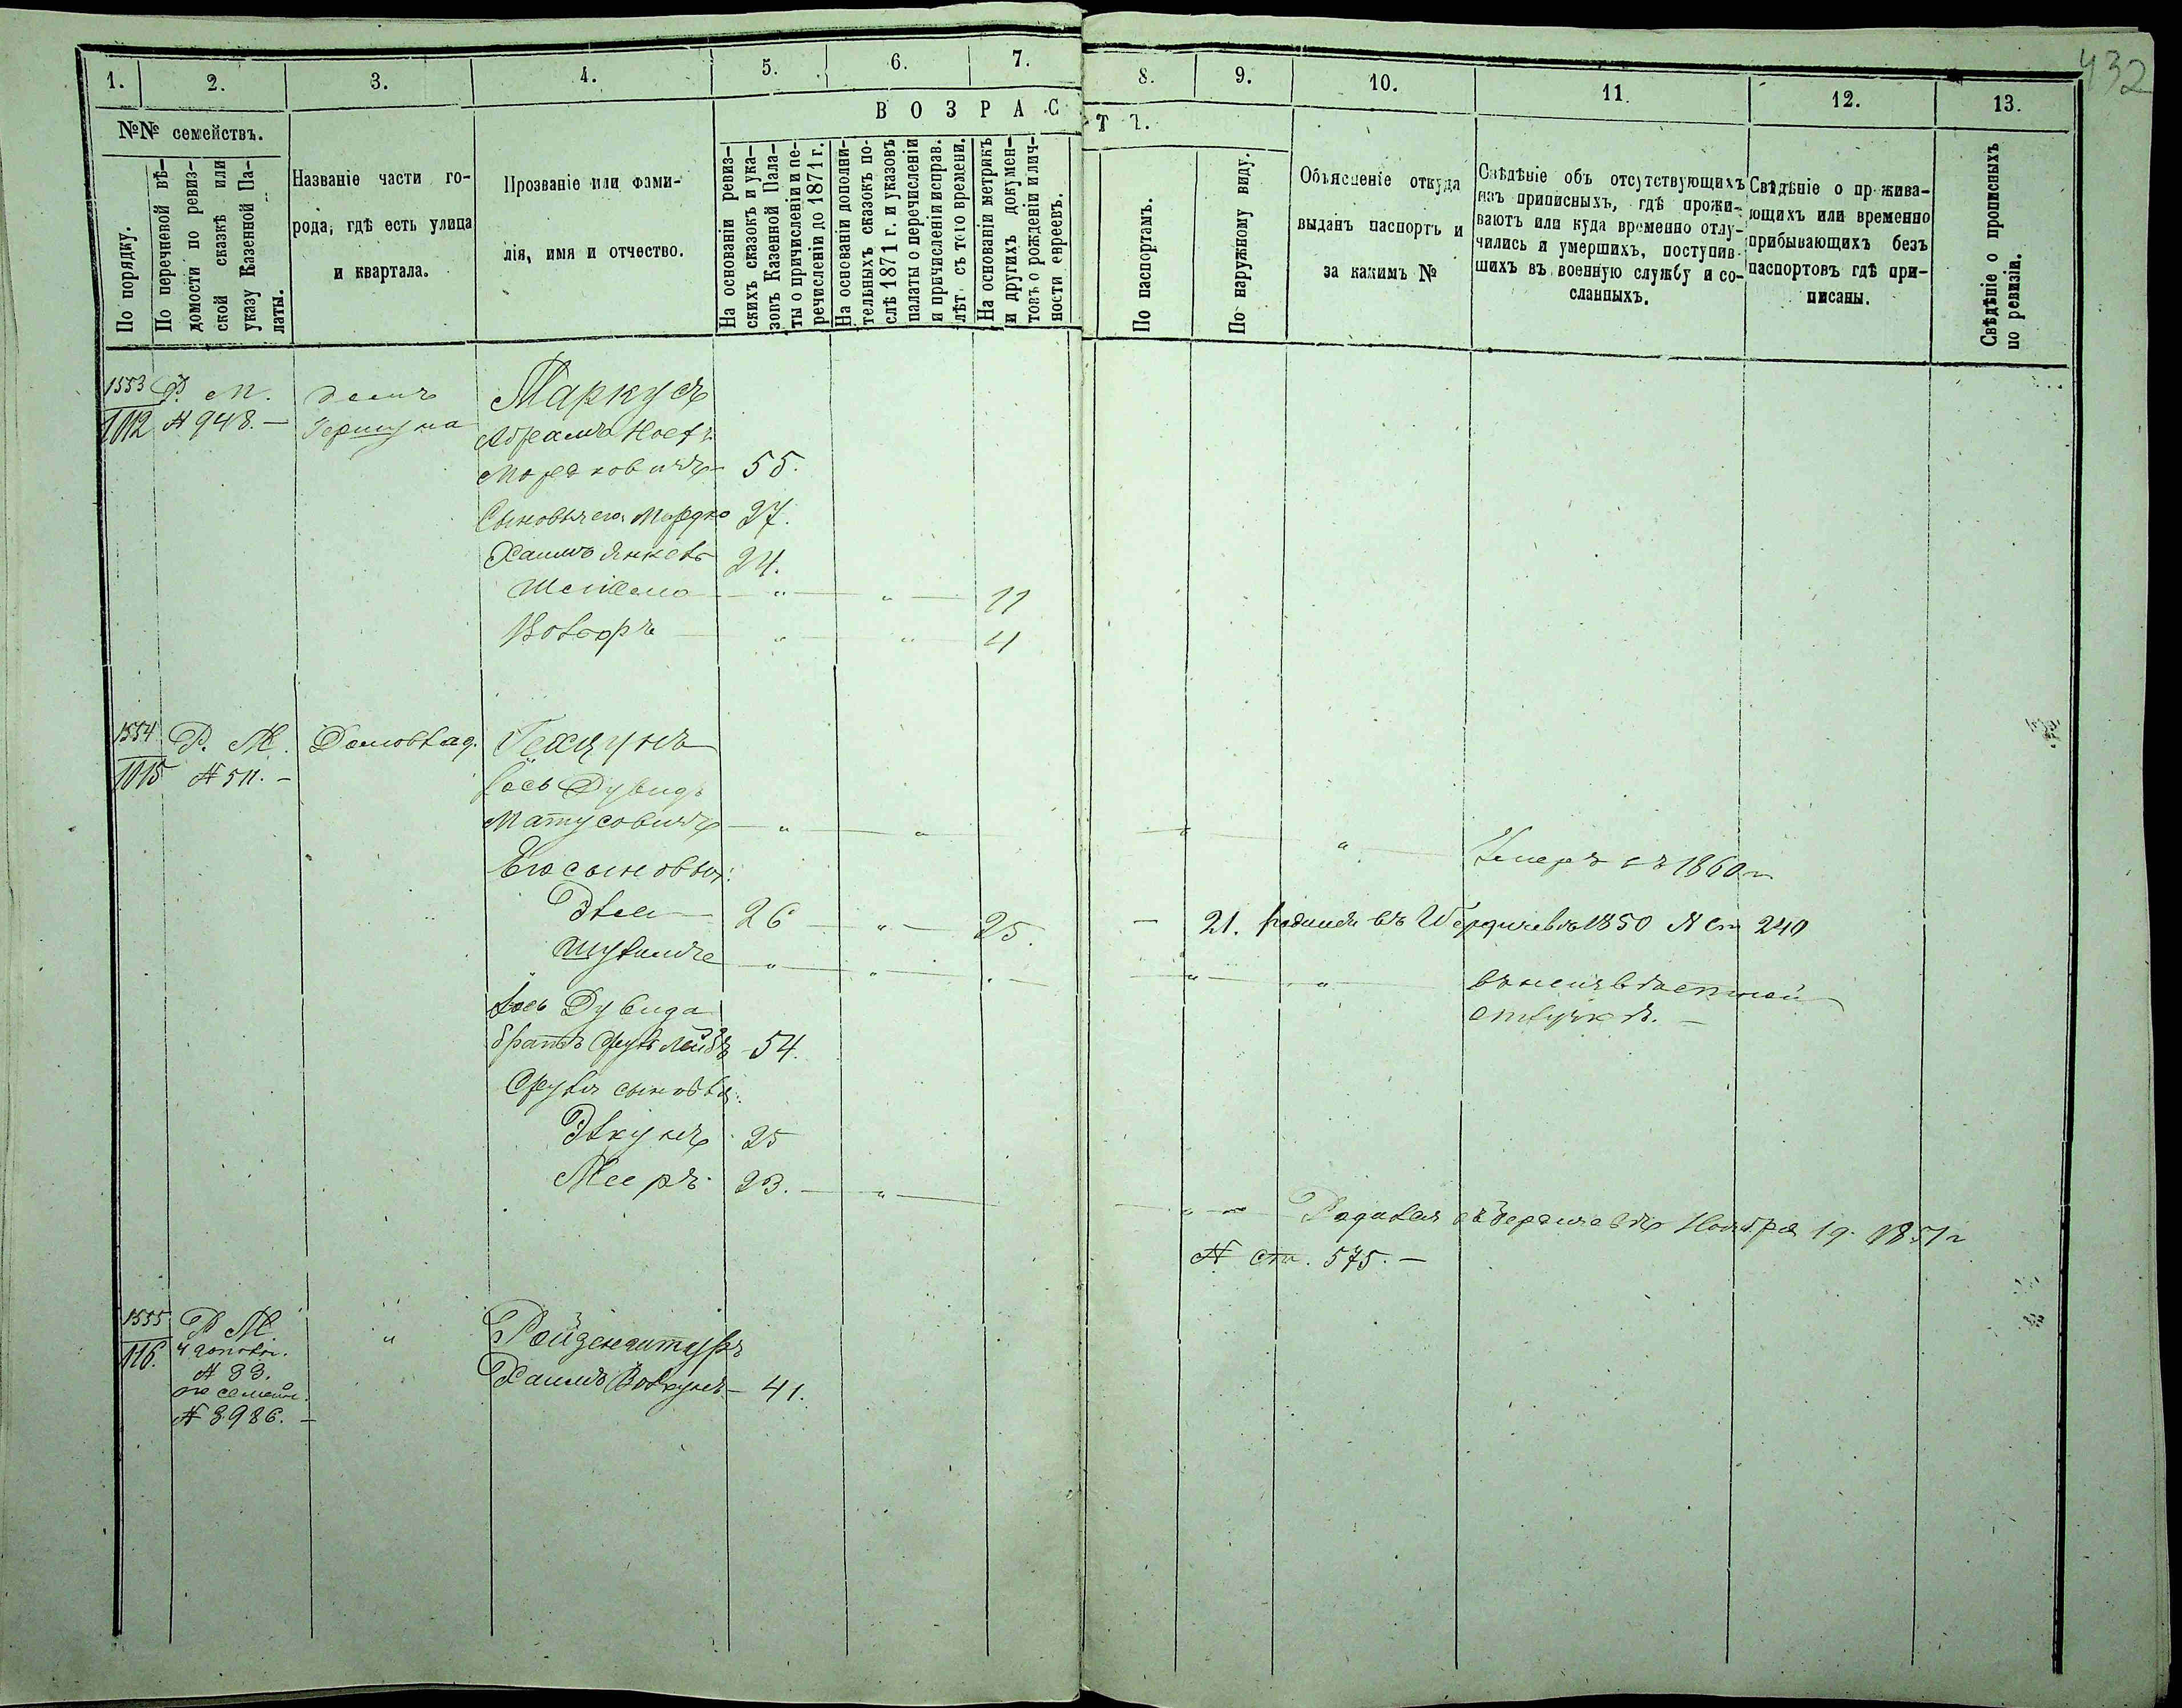 432
1. 2. 3. 4. 5. 6. 7. 8. 9. 10. 11. 12. 13.
№№ семействъ.
По порядку.
По перечневой вѣ-
домости по ревиз-
ской сказкѣ или
указу Казенной Па-
латы.
Названіе части го-
рода, гдѣ есть улица
и квартала.
Прозваніе или фами-
лія, имя и отчество.
ВОЗРАСТЪ.
На основаніи ревиз-
скихъ сказокъ и ука-
зовъ Казенной Пала-
ты о причисленіи и пе-
речисленіи до 1871 г.
На основаніи дополни-
тельныхъ сказокъ по-
слѣ 1871 г. и указовъ
палаты о перечисленіи
и причисленіи исправ.
лѣт съ того времени.
На основаніи метрикъ
и другихъ докумен-
товъ о рожденіи и лич-
ности евреевъ.
По паспортамъ.
По наружному виду.
Объясненіе откуда
выданъ паспортъ и
за какимъ №
Свѣдѣніе объ отсутствующихъ
изъ приписныхъ, гдѣ прожи-
ваютъ или куда временно отлу-
чились и умершихъ, поступив-
шихъ въ военную службу и со-
сланныхъ.
Свѣдѣніе о прожива-
ющихъ или временно
прибывающихъ безъ
паспортовъ гдѣ при-
писаны.
Свѣдѣніе о прописныхъ
по ревизіи.
1553 Р. М. домъ Маркусъ
1012 № 948. — Гершуна Абрамъ Иосъ
Мордковичъ 55.
Сыновья его: Мордко 27.
Хаимъ Янкель 24.
— „ — „ — 11
— „ — „ — 4
1554 Р. М. Домовлад.
1015 № 511. —
Іось Дувидъ
Матусовичъ — „ — „ — „ — „ — Умеръ въ 1860 г.
Его сыновья:
26 — „ — 25. — 21. въ Бердичевѣ 1850 № ст. 240
— „ — „ — „ — „ — „ — въ неизвѣстной
отлучкѣ. —
Іось Дувида
братъ Сруль Лейбъ 54.
Сруля сыновья:
Элкунъ 25
Мееръ 23. — „ — „ — Родился въ Бердичевѣ Ноября 19. 1851 г
№ ст. 575. —
1555 Р М. „ Ройзенштурхъ
116. 4 дополн. Хаимъ — 41.
№ 33.
по семейн.
№ 3986. —